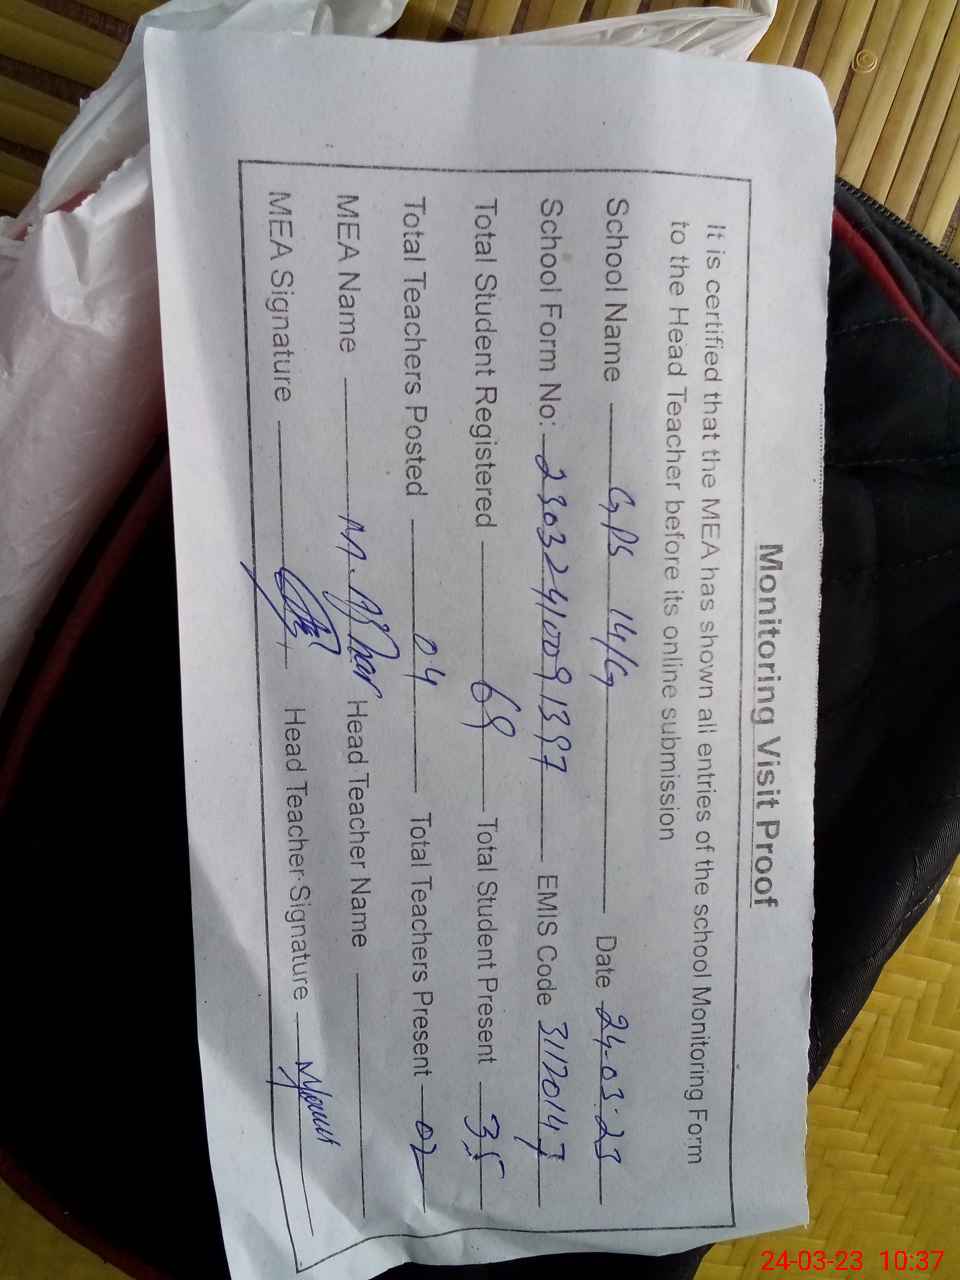 Monitoring Visit Proof
It is certified that the MEA has shown all entries of the school Monitoring Form
to the Head Teacher before its online submission
School Name GPS 14/G Date 24-03-23
School Form No: 23032410091397 EMIS Code 31120147
Total Student Registered 69 Total Student Present 35
Total Teachers Posted 04 Total Teachers Present 02
MEA Name M. Azhar Head Teacher Name
MEA Signature Head Teacher Signature
24-03-23 10:37